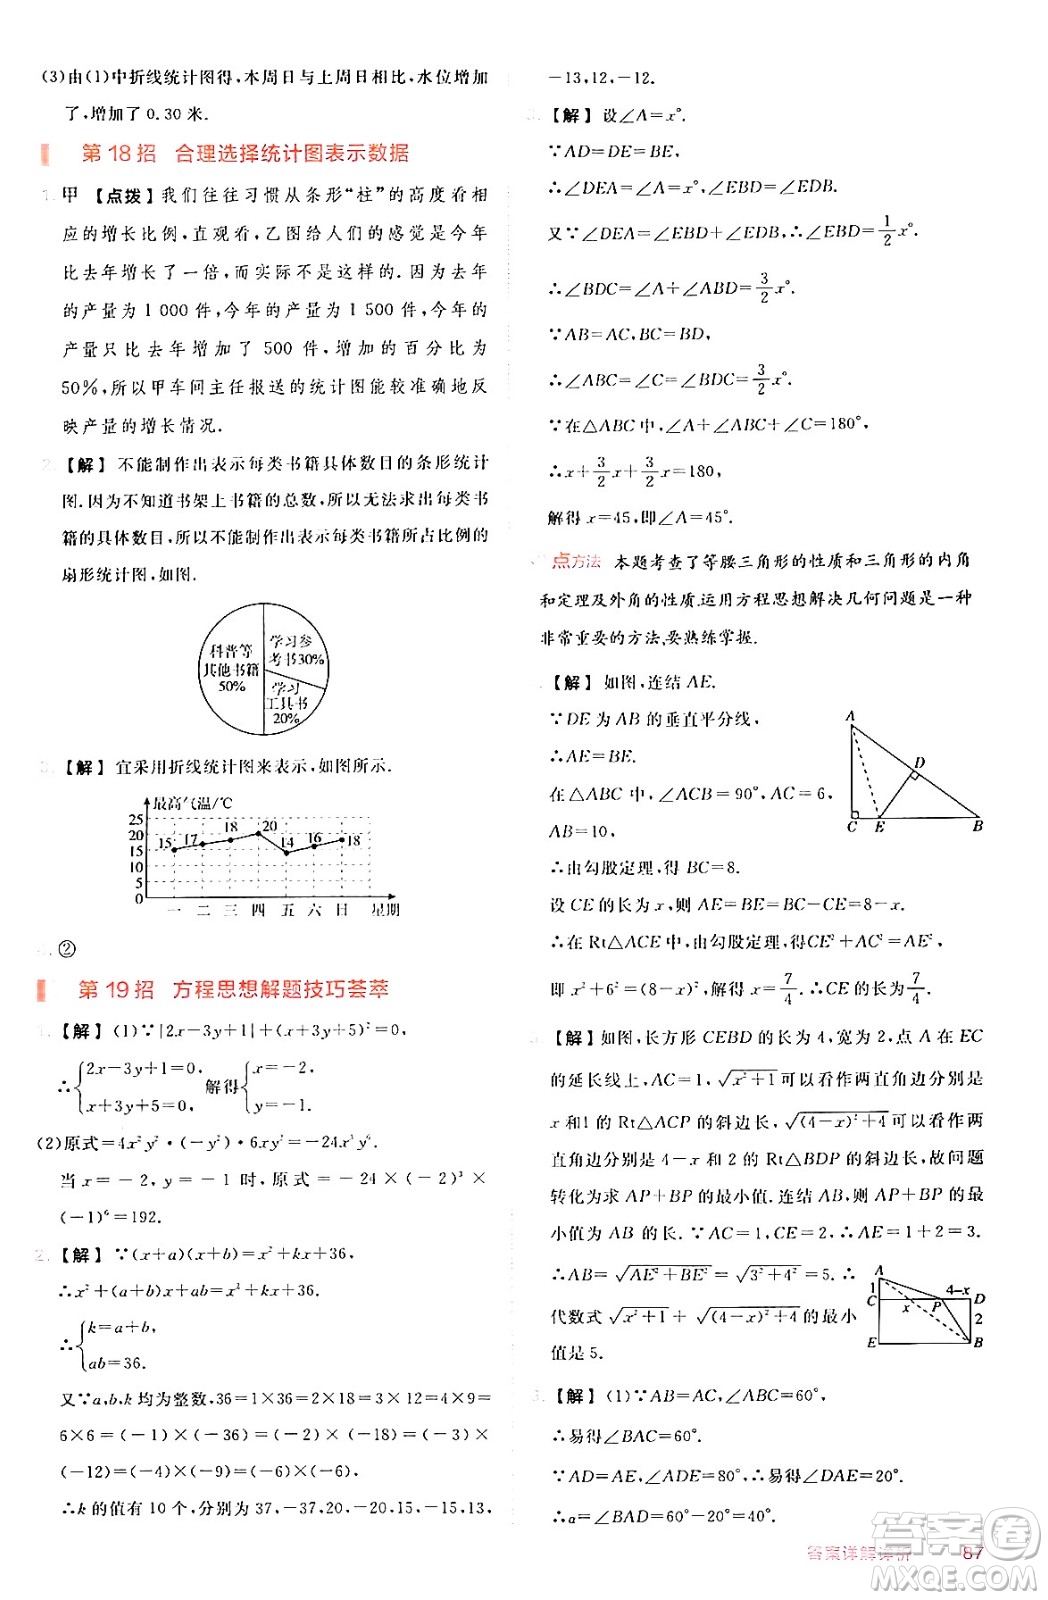 (3)由(1)中折线统计图得,本周日与上周日相比,水位增加
了,增加了 0.30 米.
第 18 招 合理选择统计图表示数据
1. 甲 【点拨】我们往往习惯从条形“柱”的高度看相
应的增长比例,直观看,乙图给人们的感觉是今年
比去年增长了一倍,而实际不是这样的.因为去年
的产量为 1 000 件,今年的产量为 1 500 件,今年的
产量只比去年增加了 500 件,增加的百分比为
50%,所以甲车间主任报送的统计图能较准确地反
映产量的增长情况.
2. 【解】不能制作出表示每类书籍具体数目的条形统计
图.因为不知道书架上书籍的总数,所以无法求出每类书
籍的具体数目.能制作出表示每类书籍所占比例的
扇形统计图,如图.
科普等
其他书籍
50%
学习参
考书30%
学习
工具书
20%
3. 【解】宜采用折线统计图来表示,如图所示.
最高气温/℃
25
20
15
10
5
0
15 17 18 20 14 16 18
一 二 三 四 五 六 日 星期
②
第 19 招 方程思想解题技巧荟萃
1. 【解】(1)∵|2x−3y+1|+(x+3y+5)²=0,
∴{2x−3y+1=0, x+3y+5=0 解得{x=−2, y=−1.
(2)原式=4x²y²·(−y²)·6xy²=−24x³y⁶.
当 x=−2,y=−1 时,原式=−24×(−2)³×
(−1)⁶=192.
2. 【解】∵(x+a)(x+b)=x²+kx+36,
∴x²+(a+b)x+ab=x²+kx+36.
∴{k=a+b, ab=36.
又∵a,b,k 均为整数,36=1×36=2×18=3×12=4×9=
6×6=(−1)×(−36)=(−2)×(−18)=(−3)×
(−12)=(−4)×(−9)=(−6)×(−6),
∴k 的值有 10 个,分别为 37,−37,20,−20,15,−15,13,
−13,12,−12.
3. 【解】设∠A=x°.
∵AD=DE=BE,
∴∠DEA=∠A=x°,∠EBD=∠EDB.
又∵∠DEA=∠EBD+∠EDB,∴∠EBD=1/2 x°.
∴∠BDC=∠A+∠ABD=3/2 x°.
∵AB=AC,BC=BD,
∴∠ABC=∠C=∠BDC=3/2 x°.
∵在△ABC 中,∠A+∠ABC+∠C=180°,
∴x+3/2 x+3/2 x=180,
解得 x=45,即∠A=45°.
点方法 本题考查了等腰三角形的性质和三角形的内角
和定理及外角的性质.运用方程思想解决几何问题是一种
非常重要的方法,要熟练掌握.
【解】如图,连结 AE.
∵DE 为 AB 的垂直平分线,
∴AE=BE.
在△ABC 中,∠ACB=90°,AC=6,
AB=10,
∴由勾股定理,得 BC=8.
设 CE 的长为 x,则 AE=BE=BC−CE=8−x.
∴在 Rt△ACE 中,由勾股定理,得 CE²+AC²=AE²,
即 x²+6²=(8−x)²,解得 x=7/4.∴CE 的长为7/4.
A
D
C E B
【解】如图,长方形 CEBD 的长为 4,宽为 2,点 A 在 EC
的延长线上,且 AC=1,√(x²+1)可以看作两直角边分别是
x 和1 的 Rt△ACP 的斜边长,√((4−x)²+4)可以看作两
直角边分别是 4−x 和 2 的 Rt△BDP 的斜边长,故问题
转化为求 AP+BP 的最小值.连结 AB,则 AP+BP 的最
小值为 AB 的长.∵AC=1,CE=2,∴AE=1+2=3.
∴AB=√(AE²+BE²)=√(3²+4²)=5.∴
代数式√(x²+1)+√((4−x)²+4)的最小
值是 5.
A
1
4−x
C x P D
2
E B
【解】(1)∵AB=AC,∠ABC=60°,
∴易得∠BAC=60°.
∵AD=AE,∠ADE=70°,∴易得∠DAE=40°.
∴a=∠BAC−∠DAE=20°.
答案详解详析 87
答案圈
MXQE.COM